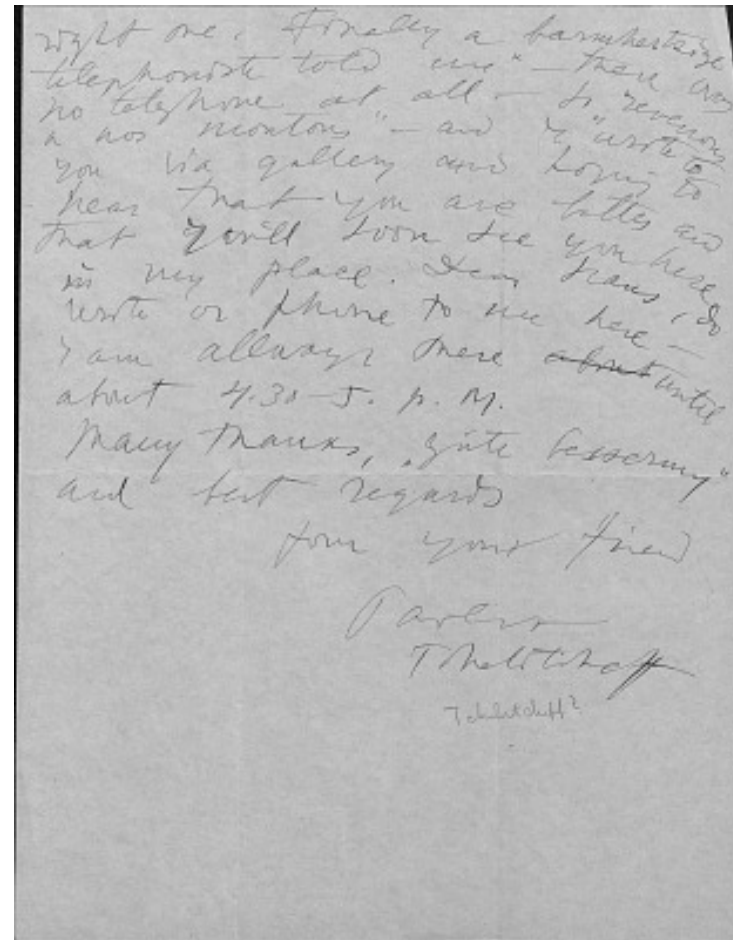 right one. Finally a barmhertzige
telephoniste told me" — there was
no telephone at all — So revenons
a nos moutons" — and I "wrote to
you via gallery and hoping to
hear that you are better and
that you'll soon see you here
in my place. Dear Hans, do
write or phone to me here —
I am allways there about until
about 4.30 – 5. p. M.
Many thanks, „gute besserung"
and best regards
from your friend
Pavlik
Tchelitcheff
Tchelitcheff?